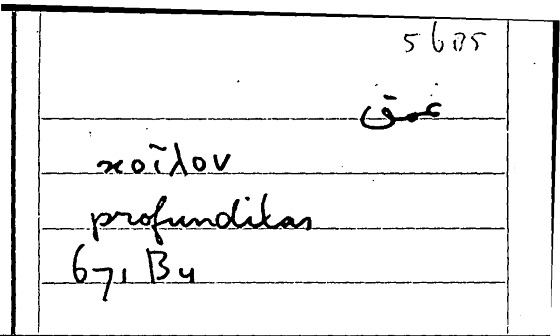 56b5
عمق
κοῖλον
profunditas
671 B4